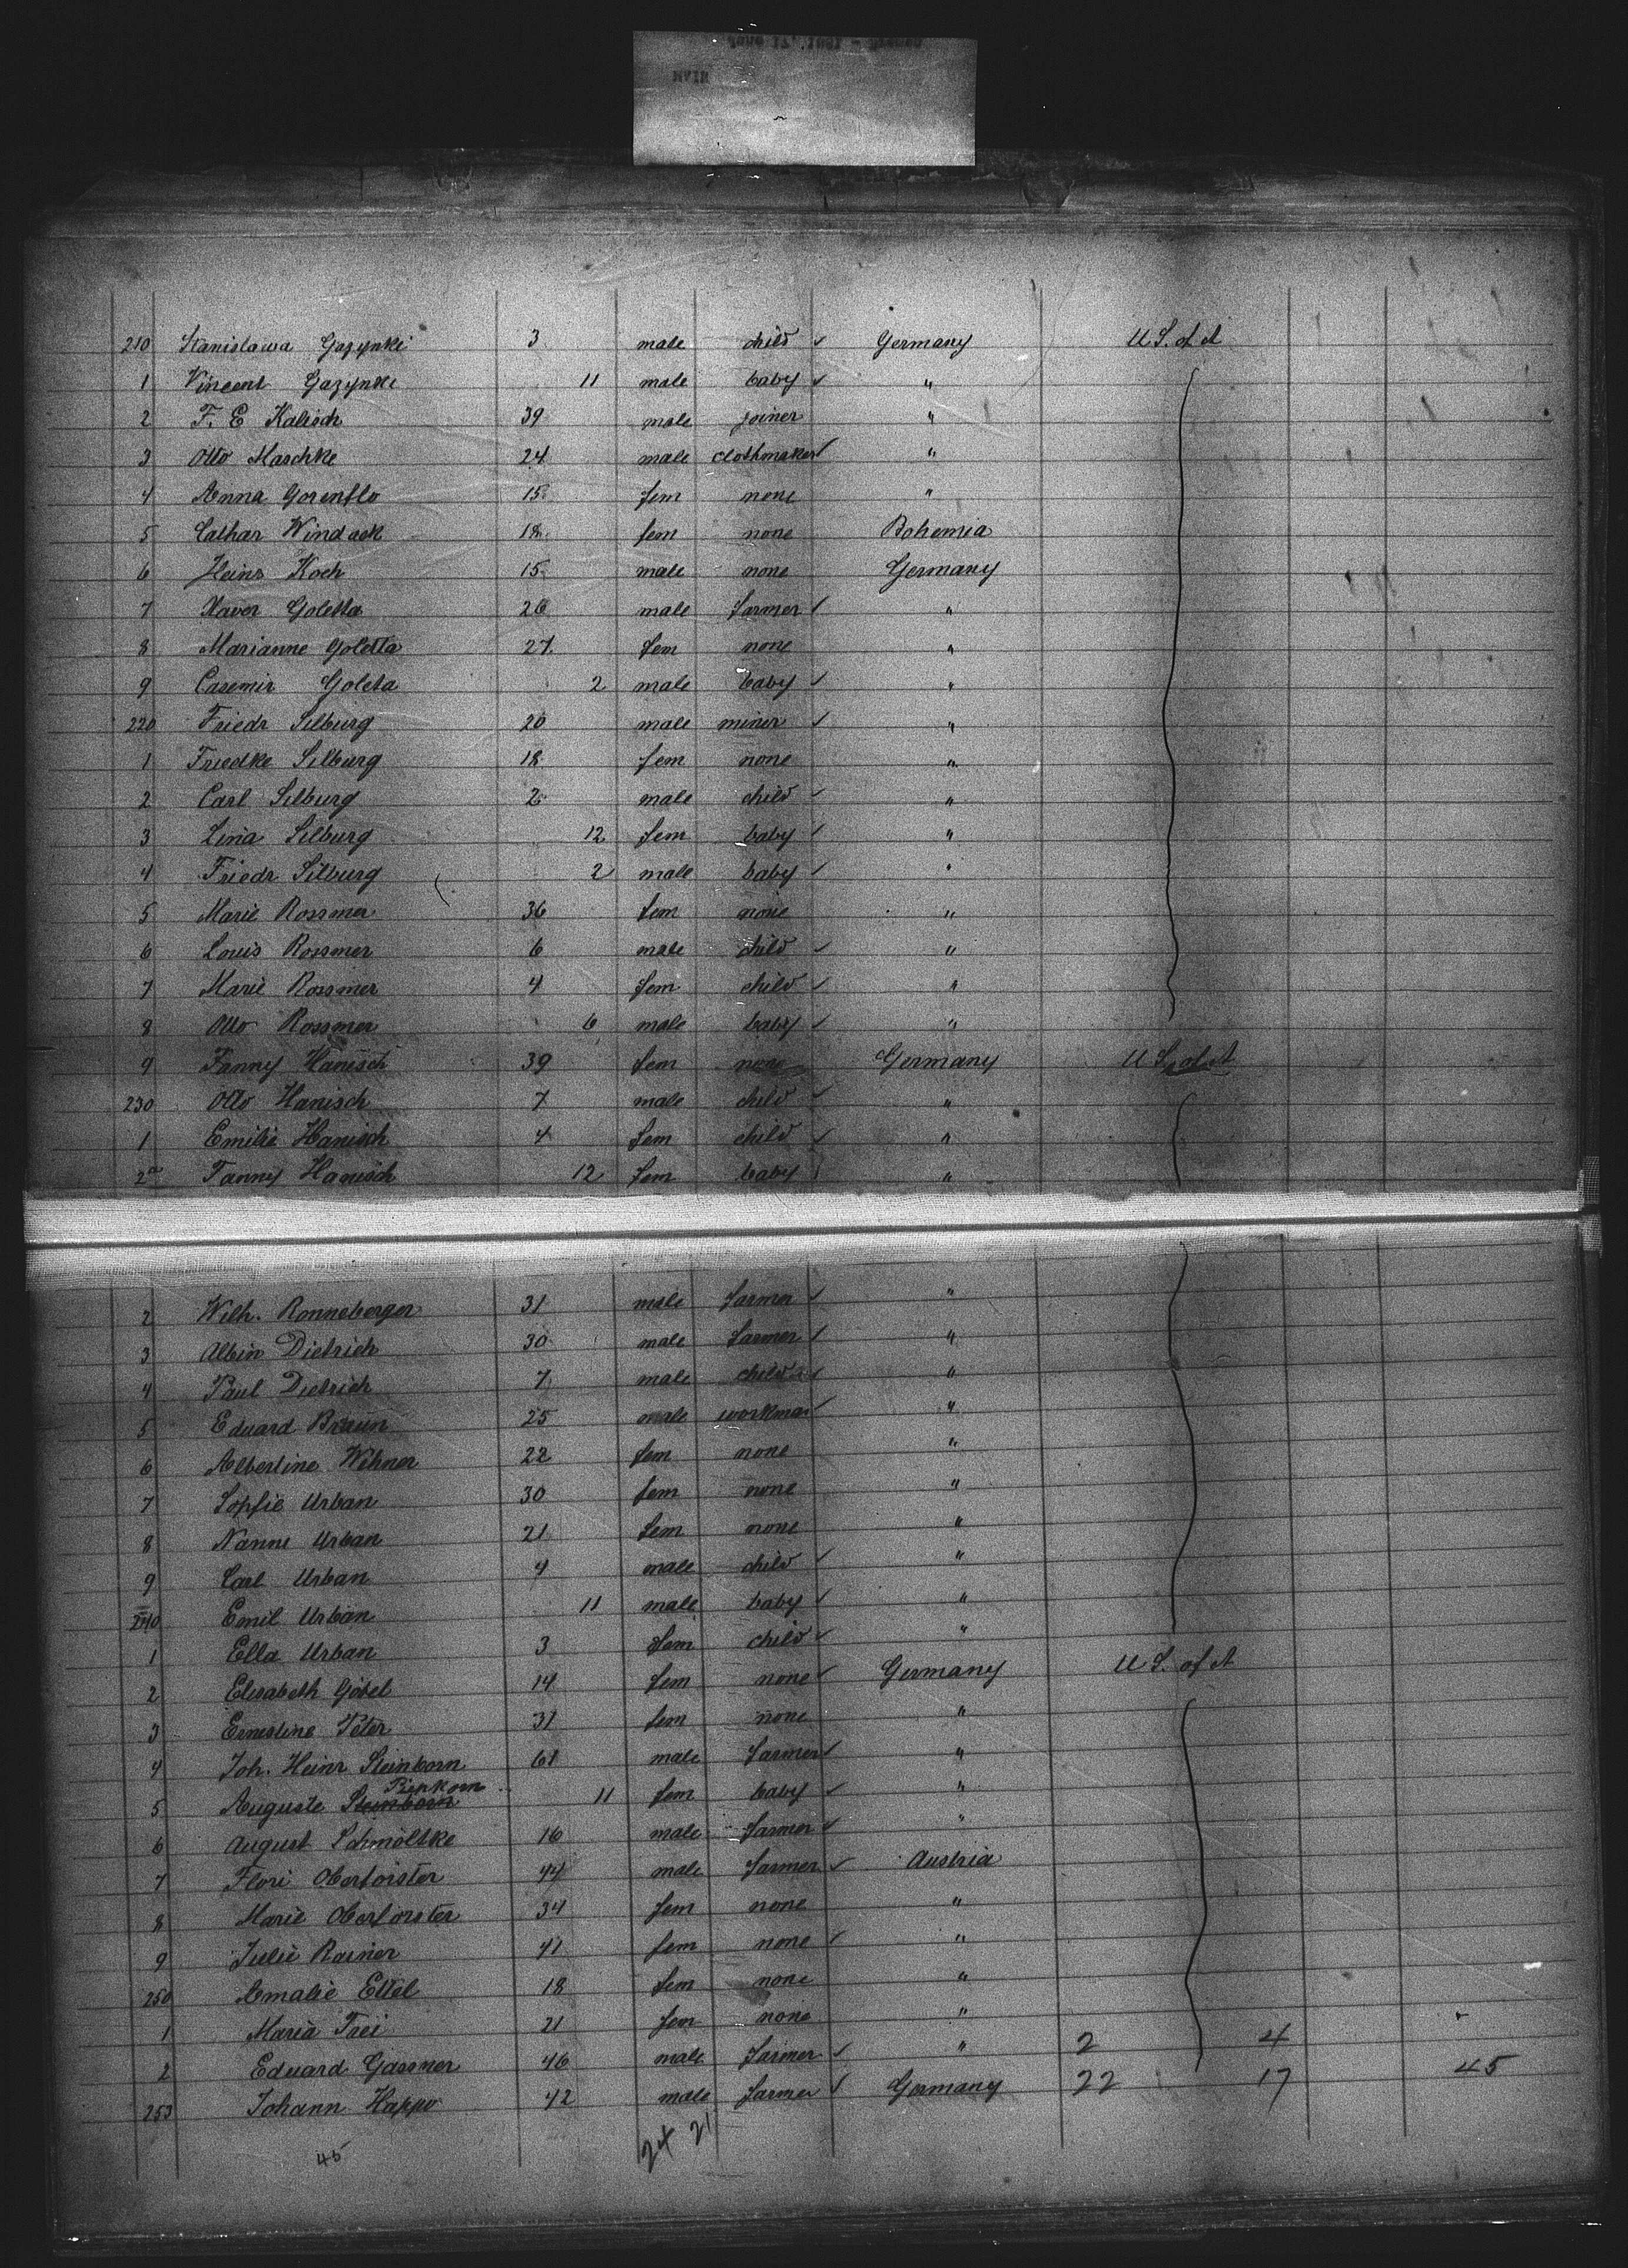 MAIN
210 Stanislawa Gazynki 3 male child ✓ Germany U S. of A
1 Vincent Gazynki 11 male baby ✓ "
2 F. E Kalisch 39 male joiner "
3 Otto Maschke 24 male clothmaker ✓ "
4 Anna Gorenflo 15 fem none "
5 Cathar Windack 18 fem none Bohemia
6 Heinr Koch 15 male none Germany
7 Xaver Goletta 26 male farmer ✓ "
8 Marianne Goletta 27 fem none "
9 Casemir Goleta 2 male baby ✓ "
220 Friedr Silburg 20 male miner ✓ "
1 Friedke Silburg 18 fem none "
2 Carl Silburg 2 male child ✓ "
3 Lina Silburg 12 fem baby ✓ "
4 Friedr Silburg 2 male baby ✓ "
5 Marie Rossmer 36 fem none "
6 Louis Rossmer 6 male child ✓ "
7 Marie Rossmer 4 fem child ✓ "
8 Otto Rossmer 6 male baby ✓ "
9 Fanny Hanisch 39 fem none Germany U S. of A
230 Otto Hanisch 7 male child ✓ "
1 Emilie Hanisch 4 fem child ✓ "
2a Fanny Hanisch 12 fem baby "
2 Wilh. Ronneberger 31 male farmer ✓ "
3 Albin Dietrich 30 male farmer ✓ "
4 Paul Dietrich 7 male child ✓ "
5 Eduard Braun 25 male workman ✓ "
6 Albertine Wehner 22 fem none "
7 Sopfie Urban 30 fem none "
8 Nanni Urban 21 fem none "
9 Carl Urban 4 male child ✓ "
240 Emil Urban 11 male baby ✓ "
1 Ella Urban 3 fem child ✓ "
2 Elisabeth Göbel 14 fem none ✓ Germany U S. of A
3 Ernestine Peter 31 fem none "
4 Joh. Heinr Steinborn 61 male farmer ✓ "
Pinkorn
5 Auguste Steinborn 11 fem baby ✓ "
6 August Schmoltke 16 male farmer ✓ "
7 Flori Oberforster 44 male farmer ✓ Austria
8 Marie Oberforster 34 fem none "
9 Julie Rainer 41 fem none ✓ "
250 Amalie Ettel 18 fem none "
1 Maria Frei 21 fem none "
2 Eduard Gassner 46 male farmer ✓ " 2 4
253 Johann Happo 42 male farmer ✓ Germany 22 17 45
45 24 21